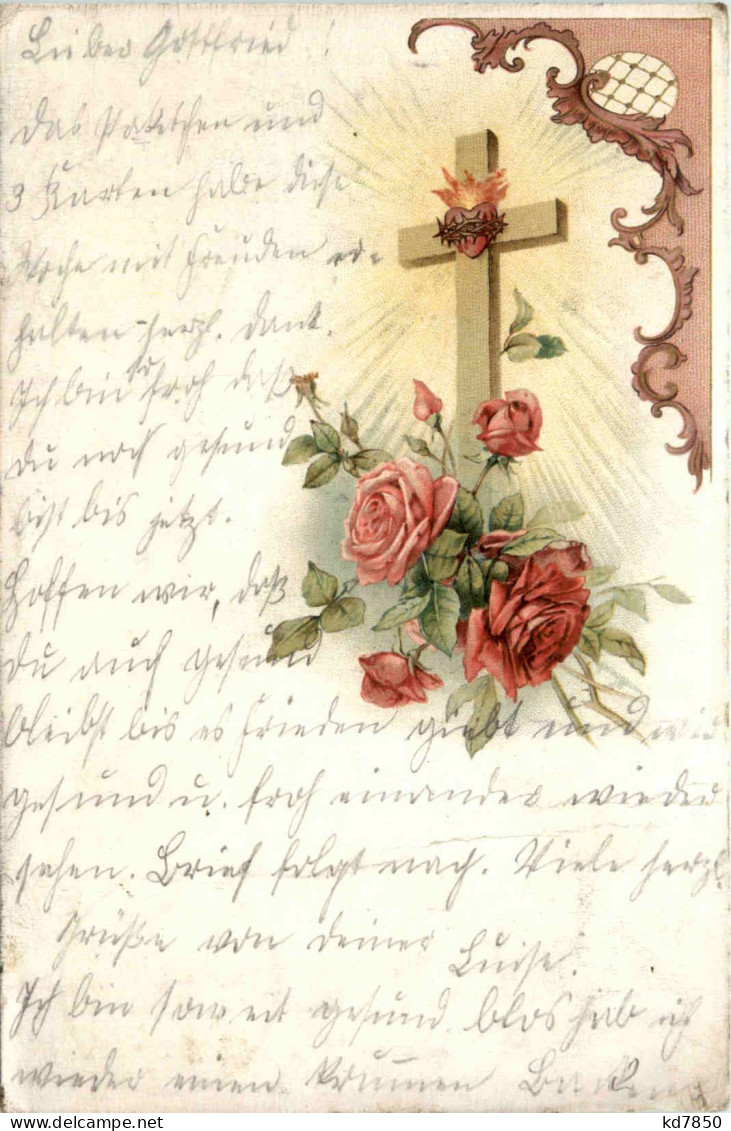 Lieber Gottfried!
das Paketchen und
3 Karten habe diese
Woche mit Freuden er=
halten herzl. Dank.
Ich bin so froh daß
du noch gesund
bist bis jetzt.
Hoffen wir, daß
du auch gesund
bleibst bis es Frieden giebt und wir
gesund u. froh einander wieder
sehen. Brief folgt nach. Viele herzl.
Grüße von deiner Luise.
Ich bin soweit gesund blos hab ich
wieder einen krummen Backen
kd7850